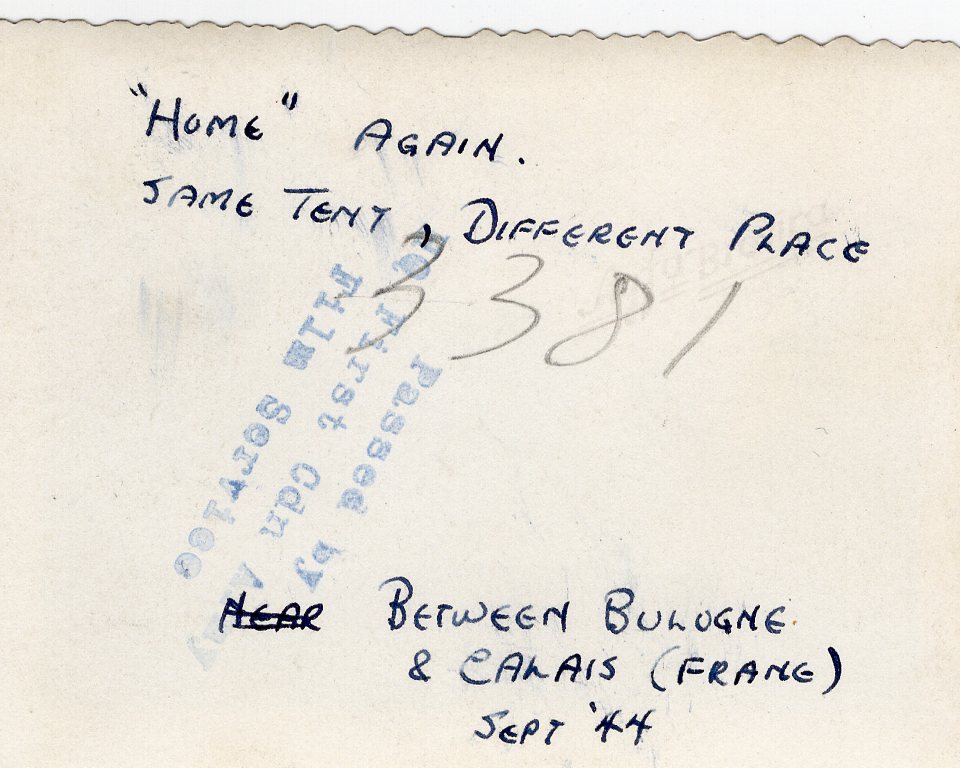 "HOME" AGAIN.
SAME TENT, DIFFERENT PLACE
3381
Passed by
HQ First Cdn Army
Film Service
NEAR BETWEEN BULOGNE
& CALAIS (FRANE)
SEPT '44